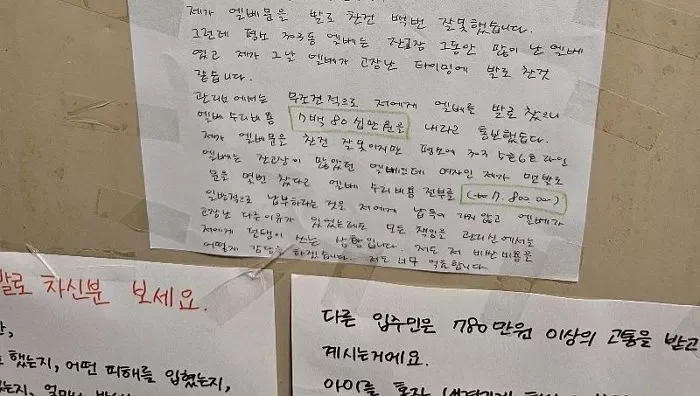 제가 엘베문을 발로 찬건 백번 잘못했습니다.
그런데 평소 303동 엘베는 잔고장 그동안 많이 난 엘베
였고 제가 그날 엘베가 고장난 타이밍에 발로 찬것
같습니다.
관리소에서는 무조건적으로 저에게 엘베를 발로 찼으니
엘베 수리비용 7백 80 십만원을 내라고 통보했습니다.
제가 엘베문을 찬건 잘못이지만 평소에 303 5호6호 라인
엘베는 잔고장이 많았던 엘베인데 여자인 제가 맨발로
문을 몇번 찼다고 엘베 수리비용 전부를 7.800.00
일방적으로 납부하라는 것은 저에게 납득이 가지 않고 엘베가
고장난 다른이유가 있었는데도 모든 책임을 관리실에서는
저에게 덤탱이 쓰는 상황입니다. 저도 저 비싼 비용을
어떻게 감당을 하겠습니까. 저도 너무 억울합니다
발로 차신분 보세요.
했는지, 어떤 피해를 입혔는지,
다른 입주민은 780만원 이상의 고통을 받고
계시는거에요.
아이를 혼자